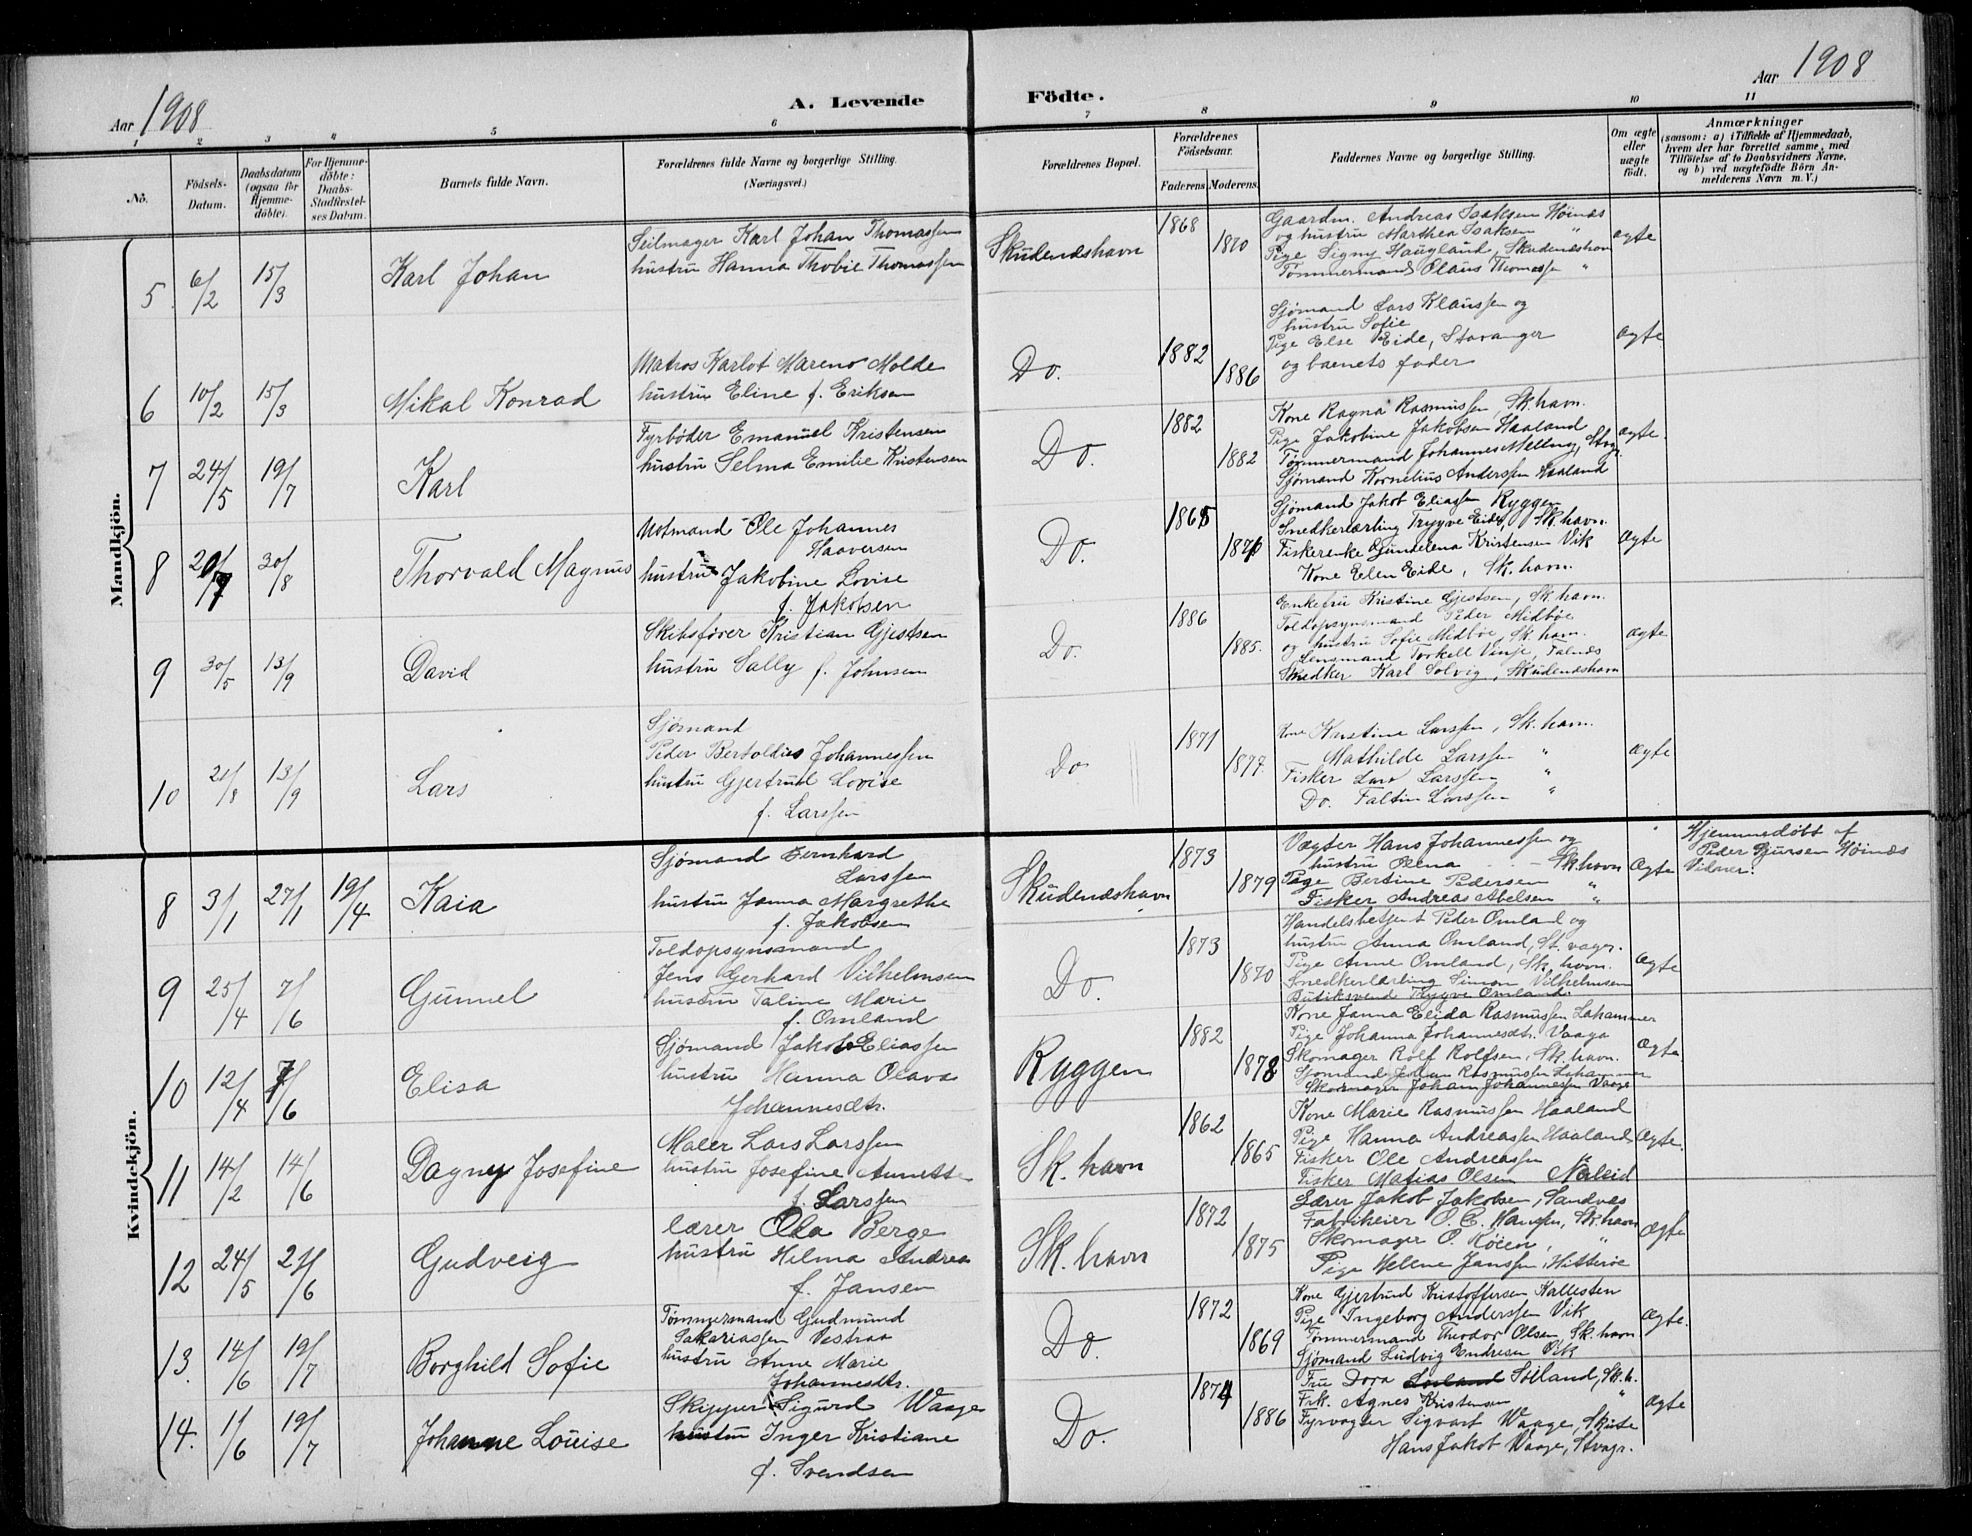 Aar 1908
A. Levende Födte.
Aar 1908
1 2 3 4 5 6 7 8 9 10 11
No.
Födsels-Datum.
Daabsdatum (ogsaa for Hjemme-döbte).
For Hjemme-döbte: Daabs-Stadfæstel-ses Datum.
Barnets fulde Navn.
Forældrenes fulde Navne og borgerlige Stilling. (Næringsvei.)
Forældrenes Bopæl.
Forældrenes Födselsaar.
Faderens. Moderens.
Faddernes Navne og borgerlige Stilling.
Om ægte eller uægte födt.
Anmærkninger
(saasom: a) i Tilfælde af Hjemmedaab,
hvem der har forrettet samme, med
Tilföielse af to Daabsvidners Navne,
og b) ved uægtefödte Börn An-
melderens Navn m. V.)
Mandkjön.
5 6/2 15/3 Karl Johan
Seilmager Karl Johan Thomassen
hustru Hanna Thobie Thomassen
Skudeneshavn 1868 1870
Gaardm. Andreas Isaksen Høines
og hustru Marthea Isaksen "
Pige Signy Haugland, Skudeneshavn
Tømmermand Olaus Thomassen "
ægte
6 10/2 15/3 Mikal Konrad
Matros Karlot Mareno Molde
hustru Eline f. Eriksen
Do. 1882 1886
Sjømand Lars Klaussen og
hustru Sofie
Pige Else Eide, Stavanger
og barnets fader
ægte
7 24/5 19/7 Karl
Fyrbøder Emanuel Kristensen
hustru Selma Emilie Kristensen
Do. 1882 1882
Kone Ragna Rasmussen, Sk.havn.
Pige Jakobine Jakobsen Haaland
Tømmermand Johannes Melling, Stvgr.
Sjømand Kornelius Anderssen Haaland
ægte.
8 20/7 30/8 Thorvald Magnus
Notmand Ole Johannes
Haaversen
hustru Jakobine Lovise
f. Jakobsen
Do. 1865 1876
Sjømand Jakob Eliassen Ryggen
Snedkerlærling Trygve Eide, Sk.havn.
Fiskerenke Gundelena Kristensen Vik
Kone Elen Eide, Sk.havn.
ægte
9 30/5 13/9 David
Skibsfører Kristian Gjestsen
hustru Sally f. Johnsen
Do. 1886 1885.
Enkefru Kristine Gjestsen, Sk.havn.
Toldopsynsmand Peder Midbøe
og hustru Sofie Midbøe, Sk.havn.
Lensmand Torkell Vinje, Falnes
Snedker Karl Solvig, Skudeneshavn
ægte
10 21/8 13/9 Lars
Sjømand
Peder Bertoldius Johannessen
hustru Gjertrud Lovise
f. Larssen
Do 1871 1877.
Kone Kristine Larssen, Sk.havn.
Mathilde Larssen "
Fisker Lars Larssen "
Do. Faltin Larssen "
ægte
Kvindekjön.
8 3/1 27/1 19/4 Kaia
Sjømand Bernhard
Larssen
hustru Janna Margrethe
f. Jakobsen
Skudeneshavn 1873 1879
Vægter Hans Johannessen og
hustru Olena - - - Sk.havn
Pige Bertine Pedersen "
Fisker Andreas Abelsen "
ægte
Hjemmedøbt af
Peder Gjursen Høines
Vidner:
9 25/4 7/6 Gunnel
Toldopsynsmand
Jens Gerhard Vilhelmsen
hustru Taline Marie
f. Omland
Do. 1873 1870
Handelsbetjent Peder Omland og
hustru Anna Omland, St.vagr.
Pige Anne Omland, Sk.havn.
Snedkerlærling Simon Vilhelmsen
Butiksvend Trygve Omland.
ægte
10 12/4 7/6 Elisa
Sjømand Jakob Eliassen
hustru Hanna Olava
Johannesdtr.
Ryggen 1882 1878
Kone Janna Elida Rasmussen Lahammer
Pige Johanna Johannesdtr. Vaaga
Skomager Rolf Rolfsen, Sk.havn.
Sjømand Johan Rasmussen Lahammer
Skomager Johan Johannessen Vaage
ægte.
11 14/2 14/6 Dagny Josefine
Maler Lars Larssen
hustru Josefine Annette
f. Larssen
Sk. havn 1862 1865
Kone Marie Rasmussen Haaland
Pige Hanna Andreassen Haaland
Fisker Ole Andreassen "
Fisker Matias Olsen Nøleid
ægte.
12 24/5 21/6 Gudveig
Lærer Ola Berge
hustru Hilma Andrea
f. Jansen
Sk. havn 1872 1875
Lærer Jakob Jakobsen, Sandves
Fabrikeier O. C. Hansen, Sk.havn
Skomager O. Røien, "
Pige Helene Janssen, Hitterøe
ægte
13. 14/6 19/7 Borghild Sofie
Tømmermand Gudmund
Sakariassen Vestraa
hustru Anne Marie
Johannesdtr.
Do. 1872 1869
Kone Gjertrud Kristoffersen Kallesten
Pige Ingeborg Anderssen Vik
Tømmermand Theodor Olsen, Sk.havn
Sjømand Ludvig Endresen Vik
ægte.
14. 1/6 19/7 Johanne Louise
Skipper Sigurd Waage
hustru Inger Kristiane
f. Svendsen
Do. 1874 1886
Fru Dora Sølland, Sk.h.
Frk. Agnes Kristensen "
Fyrvogter Sigvart Waage, Skute
Hans Jakob Waage, Stvagr.
ægte